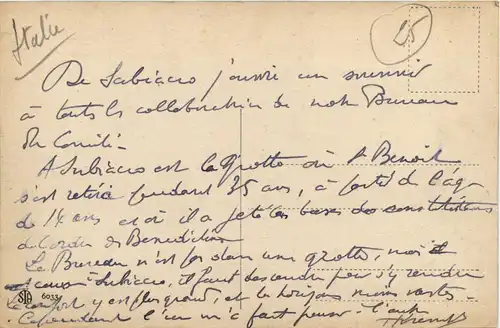 Italie
25
De Subiacco j'envoie un souvenir
à toutes les collaboratrices de notre Bureau
du Comité -
A Subiacco est la Grotte où St Benoit
s'est retiré pendant 35 ans, à partir de l'âge
de 14 ans et où il a jeté les bases des constitutions
de l'ordre des Bénédictins
Le Bureau n'est pas dans une grotte, mais
à Subiacco, il faut descendre pour s'y rendre
y est plus grand, et les horizons moins vastes -
Cependant l'un m'a fait penser à l'autre
STA 6033